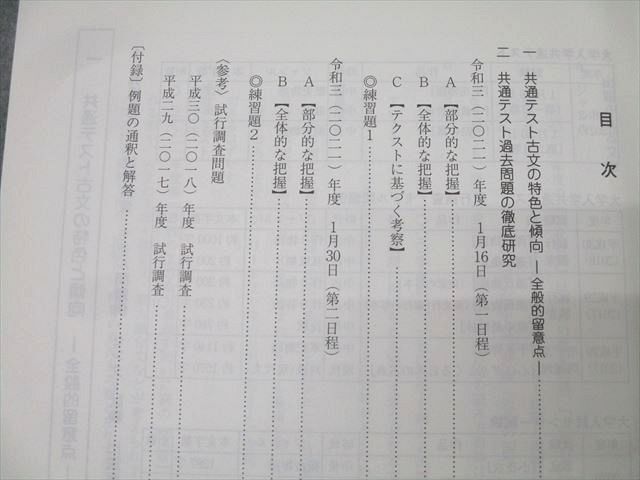 目次
一 共通テスト古文の特色と傾向 ―全般的留意点―
二 共通テスト過去問題の徹底研究
令和三（二〇二一）年度 1月16日（第一日程）
A【部分的な把握】
B【全体的な把握】
C【テクストに基づく考察】
◎練習題1
令和三（二〇二一）年度 1月30日（第二日程）
A【部分的な把握】
B【全体的な把握】
◎練習題2
〈参考〉試行調査問題
平成三〇（二〇一八）年度 試行調査
平成二九（二〇一七）年度 試行調査
〔付録〕例題の通釈と解答
一 共通テスト古文の特色と傾向 ―全般的留意点―